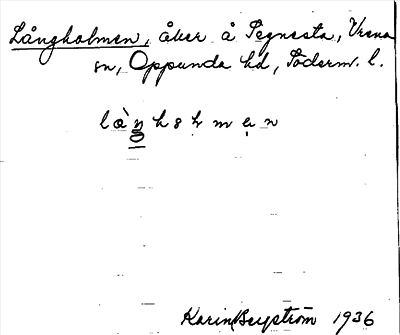 Långholmen, åker å Tegnesta, Vrena
sn, Oppunda hd, Söderm. l.
Karin Bergström 1936